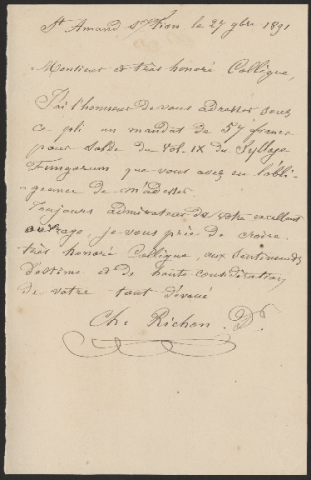 St Amand s/ Fion le 27 9bre 1891
Monsieur et très honoré Collègue,
J'ai l'honneur de vous adresser sous
ce pli un mandat de 57 francs
pour solde du Vol. IX du Sylloge
Fungorum que vous avez eu l'obli-
geance de m'adresser
Toujours admirateur de votre excellent
ouvrage, je vous prie de croire
très honoré Collègue, aux sentiments
d'estime et de haute considération
de votre tout dévoué
Ch. Richon Dr.